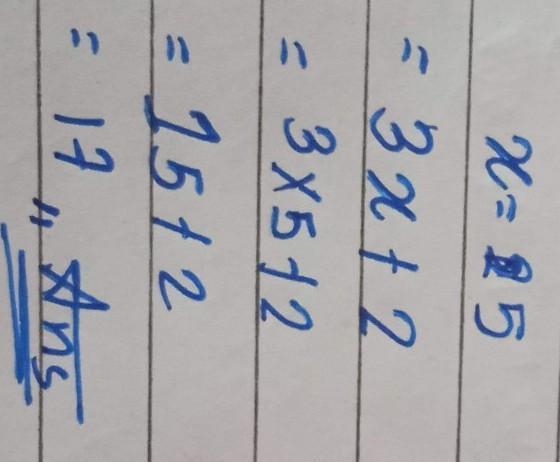 x = 5
= 3x + 2
= 3 × 5 + 2
= 15 + 2
= 17 " Ans